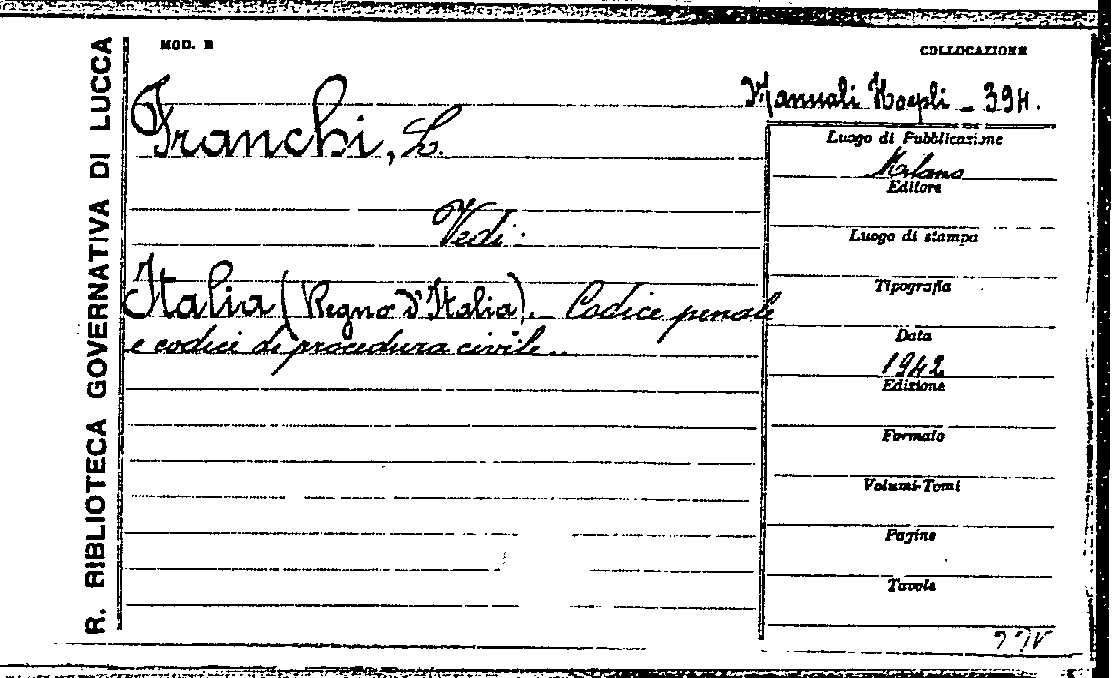 R. BIBLIOTECA GOVERNATIVA DI LUCCA
MOD. B
COLLOCAZIONE
Manuali Hoepli - 394.
Franchi, L.
Vedi:
Italia (Regno d'Italia). - Codice penale
e codici di procedura civile..
Luogo di Pubblicazione
Milano
Editore
Luogo di stampa
Tipografia
Data
1942
Edizione
Formato
Volumi-Tomi
Pagine
Tavole